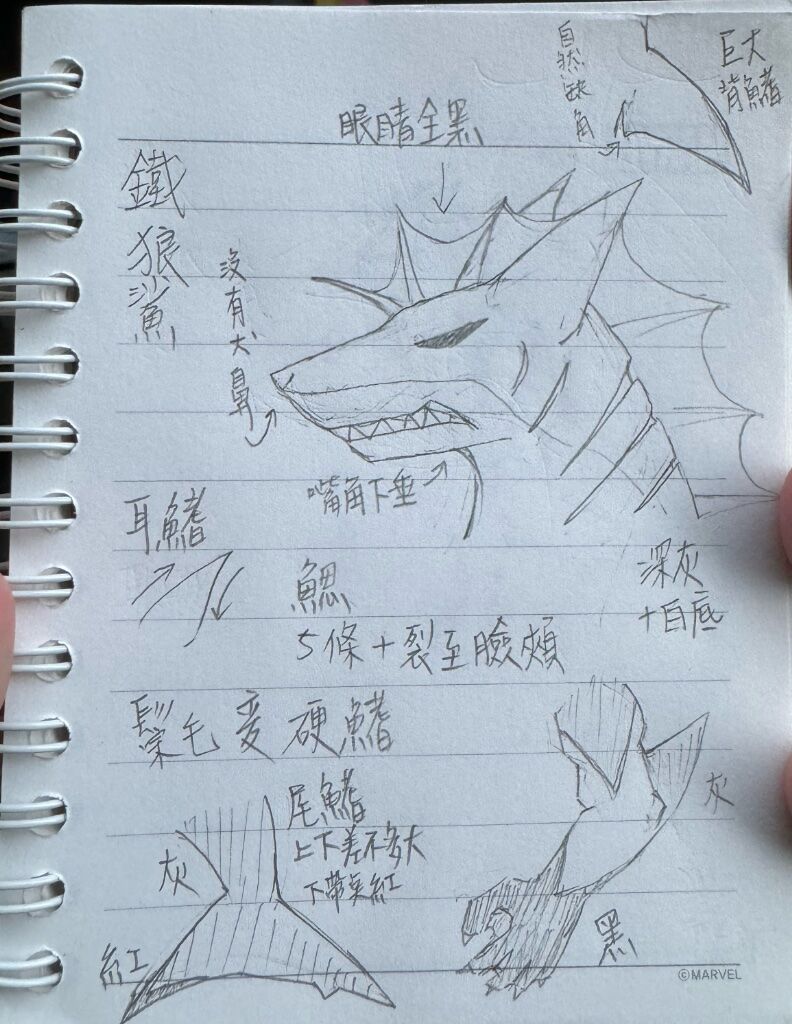 自然缺角
巨大
背鰭
眼睛全黑
鐵狼鯊
沒有犬鼻
嘴角下垂
耳鰭
深灰
+白底
鰓
5條+裂至臉頰
鬃毛變硬鰭
尾鰭
上下差不多大
下帶點紅
灰
紅
灰
黑
©MARVEL